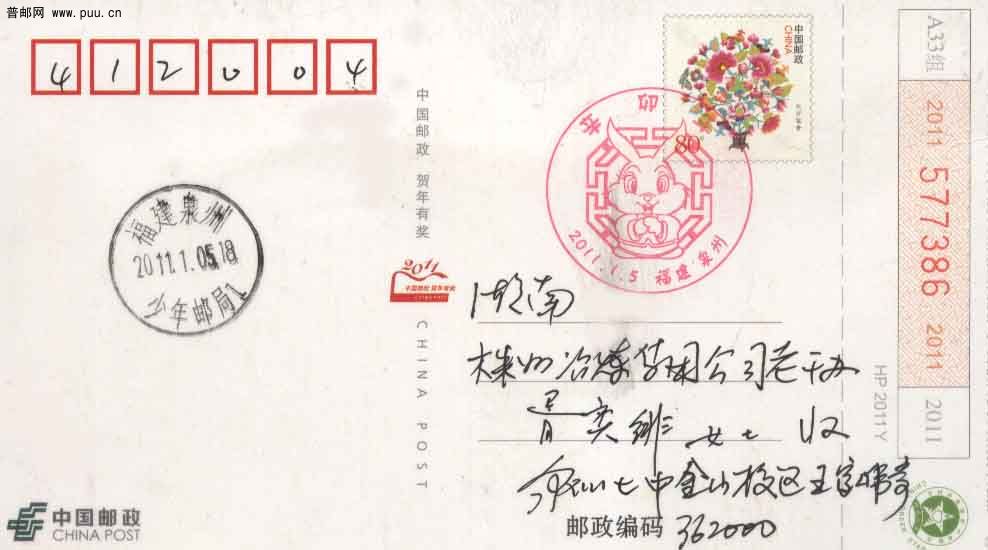 普邮网 www.puu.cn
412004
中国邮政 贺年有奖
2011
CHINA POST
中国邮政
CHINA
80
辛卯
2011.1.5 福建·泉州
福建泉州
2011.1.05.18
少年邮局
湖南
株州冶炼集团公司老干办
奕 女士 收
泉州七中金山校区王
邮政编码 362000
中国邮政
CHINA POST
A33组
2011 577386 2011
2011
HP 2011Y